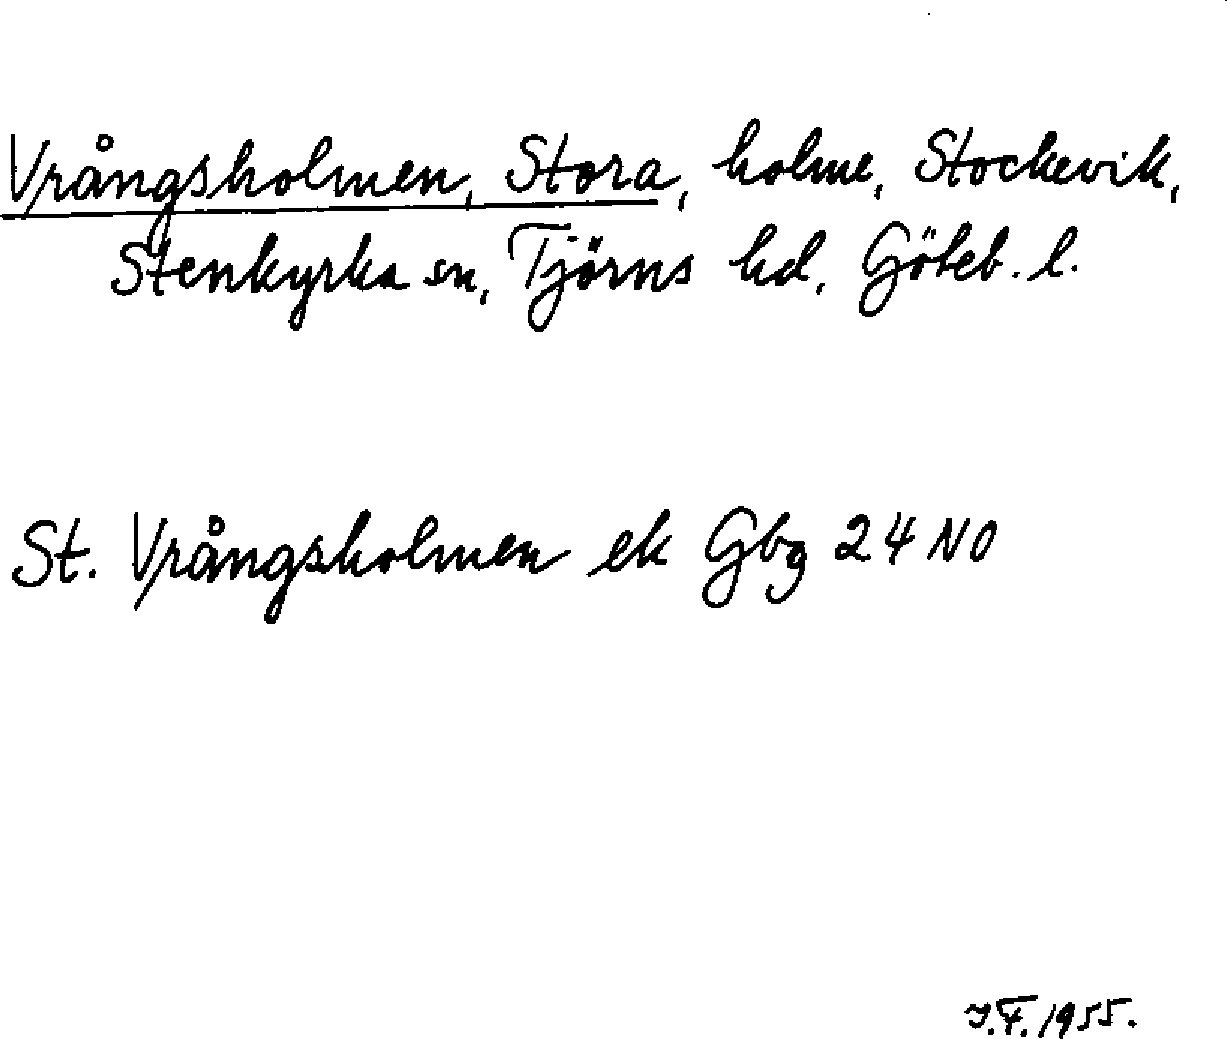 Vrångsholmen, Stora, holme, Stockevik,
Stenkyrka sn, Tjörns hd, Göteb. l.
St. Vrångsholmen ek Gbg 24 NO
J.F. 1955.